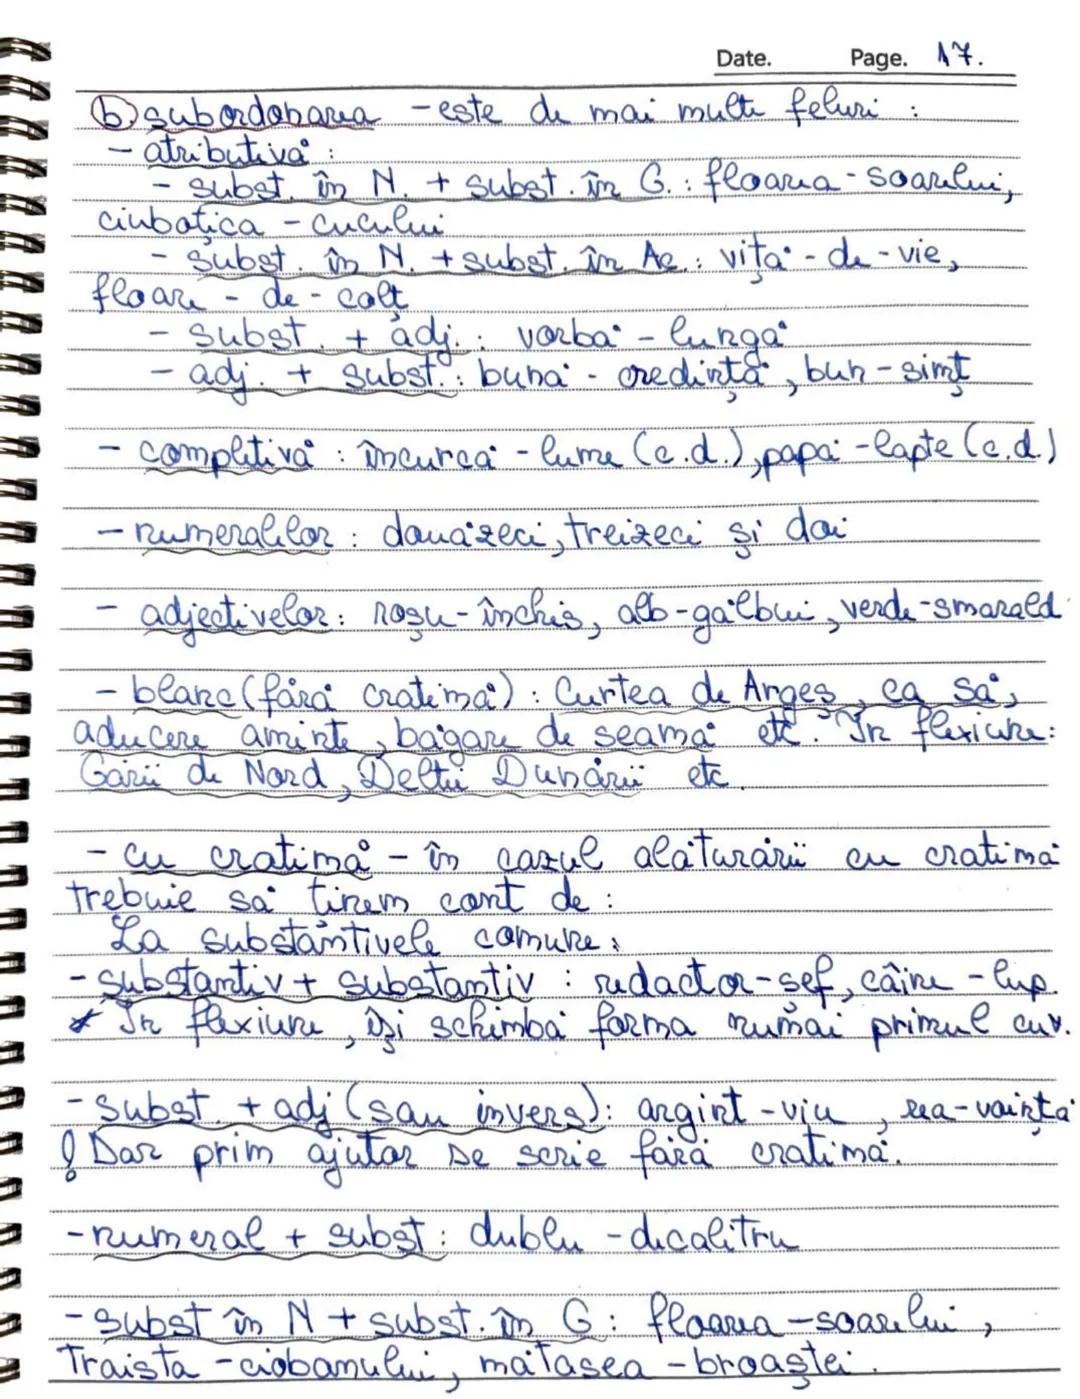 Date. Page. 17.
b) subordonarea - este de mai multe feluri :
- atributivă :
- subst. în N. + subst. în G. : floarea - soarelui,
ciuboțica - cucului
- subst. în N. + subst. în Ac. : viță - de - vie,
floare - de - colț
- subst. + adj. : vorbă - lungă
- adj. + subst. : bună - credință, bun - simț
- completivă : încurcă - lume (c.d.), papă - lapte (c.d.)
- numeralelor : douăzeci, treizeci și doi
- adjectivelor : roșu - închis, alb - gălbui, verde - smarald
- blanc (fără cratimă) : Curtea de Argeș, ca să,
aducere aminte, băgare de seamă etc. În flexiune :
Gării de Nord, Deltei Dunării etc.
- cu cratimă - în cazul alăturării cu cratimă
trebuie să ținem cont de :
La substantivele comune :
- substantiv + substantiv : redactor - șef, câine - lup.
* În flexiune, își schimbă forma numai primul cuv.
- subst. + adj (sau invers) : argint - viu, rea - voință
! Dar prim ajutor se scrie fără cratimă.
- numeral + subst : dublu - decalitru
- subst în N + subst. în G : floarea - soarelui,
Traista - ciobanului, mătasea - broaștei.